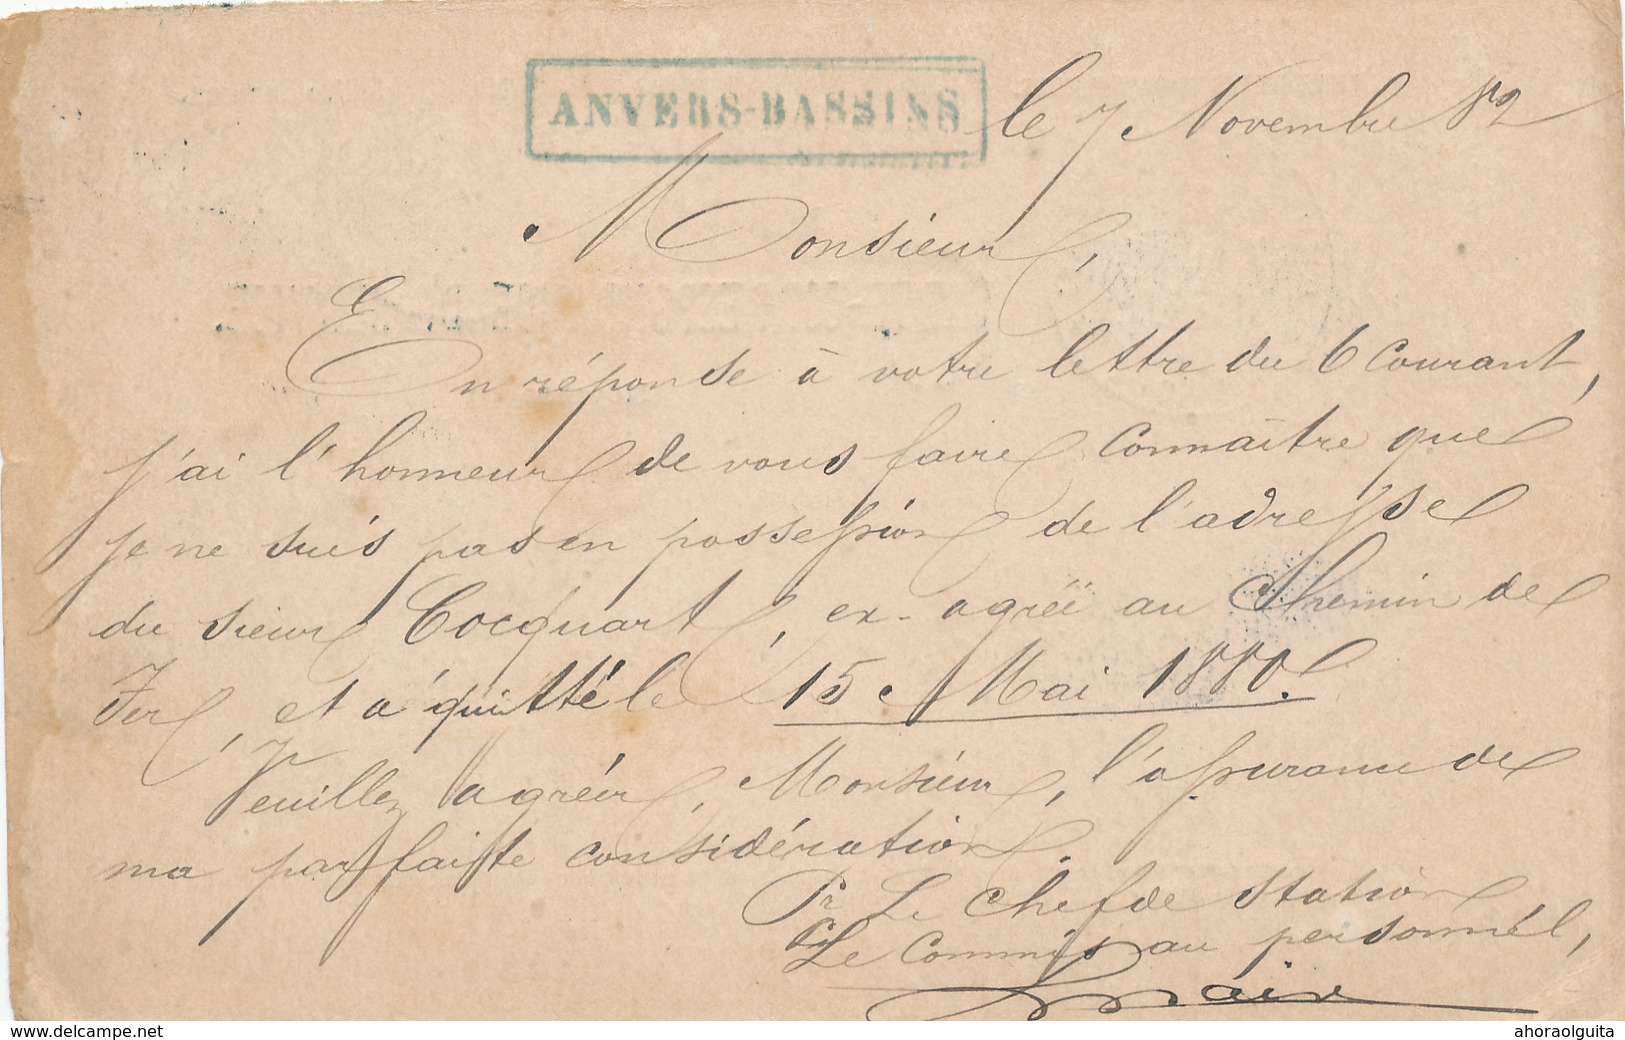 ANVERS-BASSINS le 7 Novembre 82
Monsieur,
En réponse à votre lettre du 6 courant,
j'ai l'honneur de vous faire connaître que
je ne suis pas en possession de l'adresse
du sieur Cocquart, ex-agréé au Chemin de
Fer, et a quitté le 15 Mai 1880.
Veuillez agréer, Monsieur, l'assurance de
ma parfaiste considération.
Pr Le Chef de Station
Le Commis au personnel,
delcampe.net
ahoraolguita